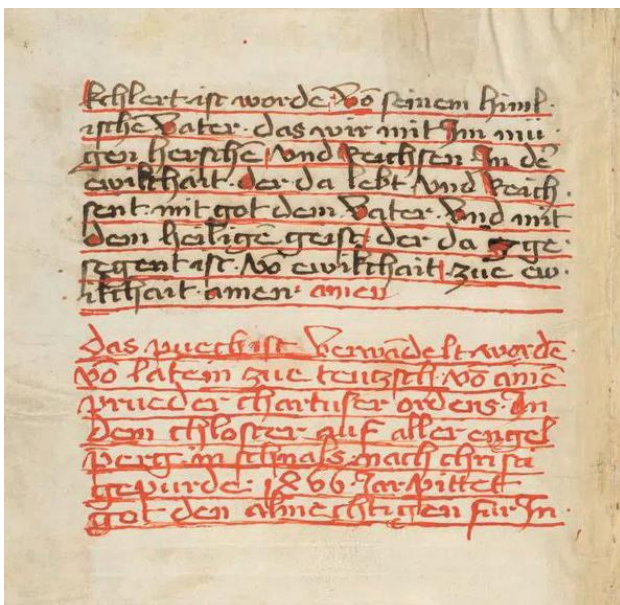 kchlert ist wordē Vō seinem himl·
ischē Vater· das wir mit Im mü·
gen herschē Vnd Reichsen In dē
ewikhait· der da lebt Vnd Reich·
sent· mit got dem Vater· Vnd mit
dem heiligē geist der da ge·
segent ist· Vō ewikthait zue ew·
ikthait· amen· amen
das puech ist Verwādelt wordē·
Vō latein zue teutzsch· Vō ainē
prueder chartuser ordens· In
dem chloster auf aller engel
perg· in schnals nach christi
gepurde· Jar· pittet
got den almechtigen für In·